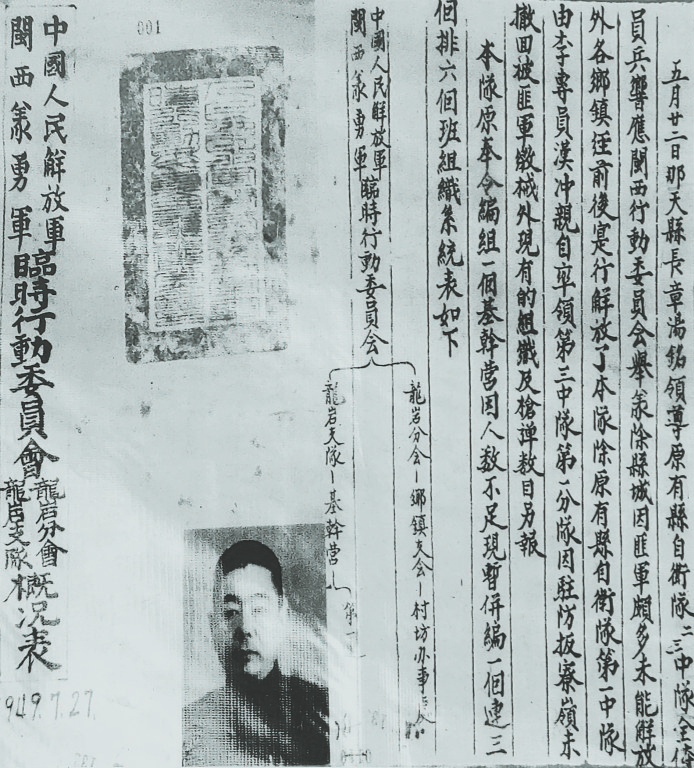 五月廿二日那天縣長章湯銘領導原有縣自衛隊二三中隊全体
員兵響應閩西行動委員会舉義除縣城因匪軍頗多未能解放
外各鄉鎮徃前後宣行解放了本隊除原有縣自衛隊第一中隊
由李專員漢冲親自率領第三中隊第一分隊因駐防扳寮嶺未
撤回被匪軍繳械外現有的組織及槍弹数目另報
本隊原奉令編組一個基幹营因人数不足現暫併編一個連三
個排六個班組織系統表如下
中國人民解放軍
閩西義勇軍
臨時行動委員会
龍岩分会—鄉鎮支会—村坊办事
龍岩支隊—基幹营—第一
001
中國人民解放軍
閩西義勇軍
臨時行動委員會
龍岩分會
龍岩支隊
概況表
949.7.27